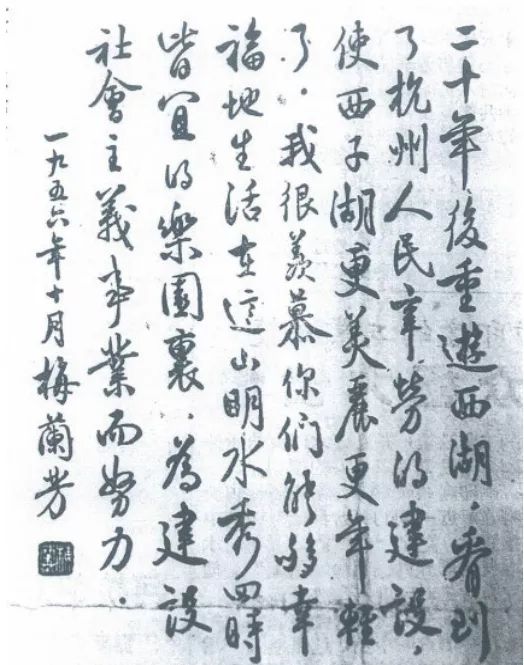 二十年後重遊西湖，看到
了杭州人民辛勞的建設，
使西子湖更美麗更年輕
了．我很羨慕你們能夠幸
福地生活在這山明水秀四時
皆宜的樂園裏．為建設
社會主義事業而努力．
一九五六年十月梅蘭芳